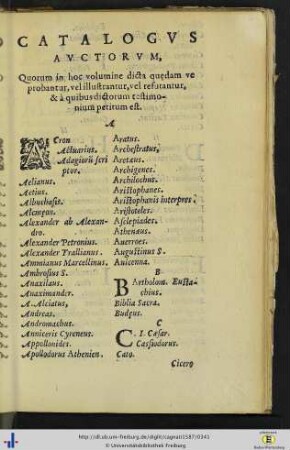 CATALOGVS
AVCTORVM,
Quorum in hoc volumine dicta quędam ve
probantur, vel illustrantur, vel refutantur,
& à quibus dictorum testimo-
nium petitum est.
A
ACron
Actuarius.
Adagiorū scri
ptor.
Aelianus.
Aetius.
Albuchasis.
Alcmęon.
Alexander ab Alexan-
dro.
Alexander Petronius.
Alexander Trallianus.
Ammianus Marcellinus.
Ambrosius S.
Anaxilaus.
Anaximander.
A. Alciatus.
Andreas.
Andromachus.
Anniceris Cyreneus.
Appollonides.
Apollodorus Athenien.
Aratus.
Archestratus,
Aretæus.
Archigenes.
Archilochus.
Aristophanes.
Aristophanis interpres.
Aristoteles.
Asclepiades.
Athenæus.
Auerroes.
Augustinus S.
Auicenna.
B
Bartholom. Eusta-
chius.
Biblia Sacra.
Budęus.
C
C. I. Cæsar.
Cassiodorus.
Cato.
Cicero
http://dl.ub.uni-freiburg.de/diglit/cagnati1587/0341
© Universitätsbibliothek Freiburg